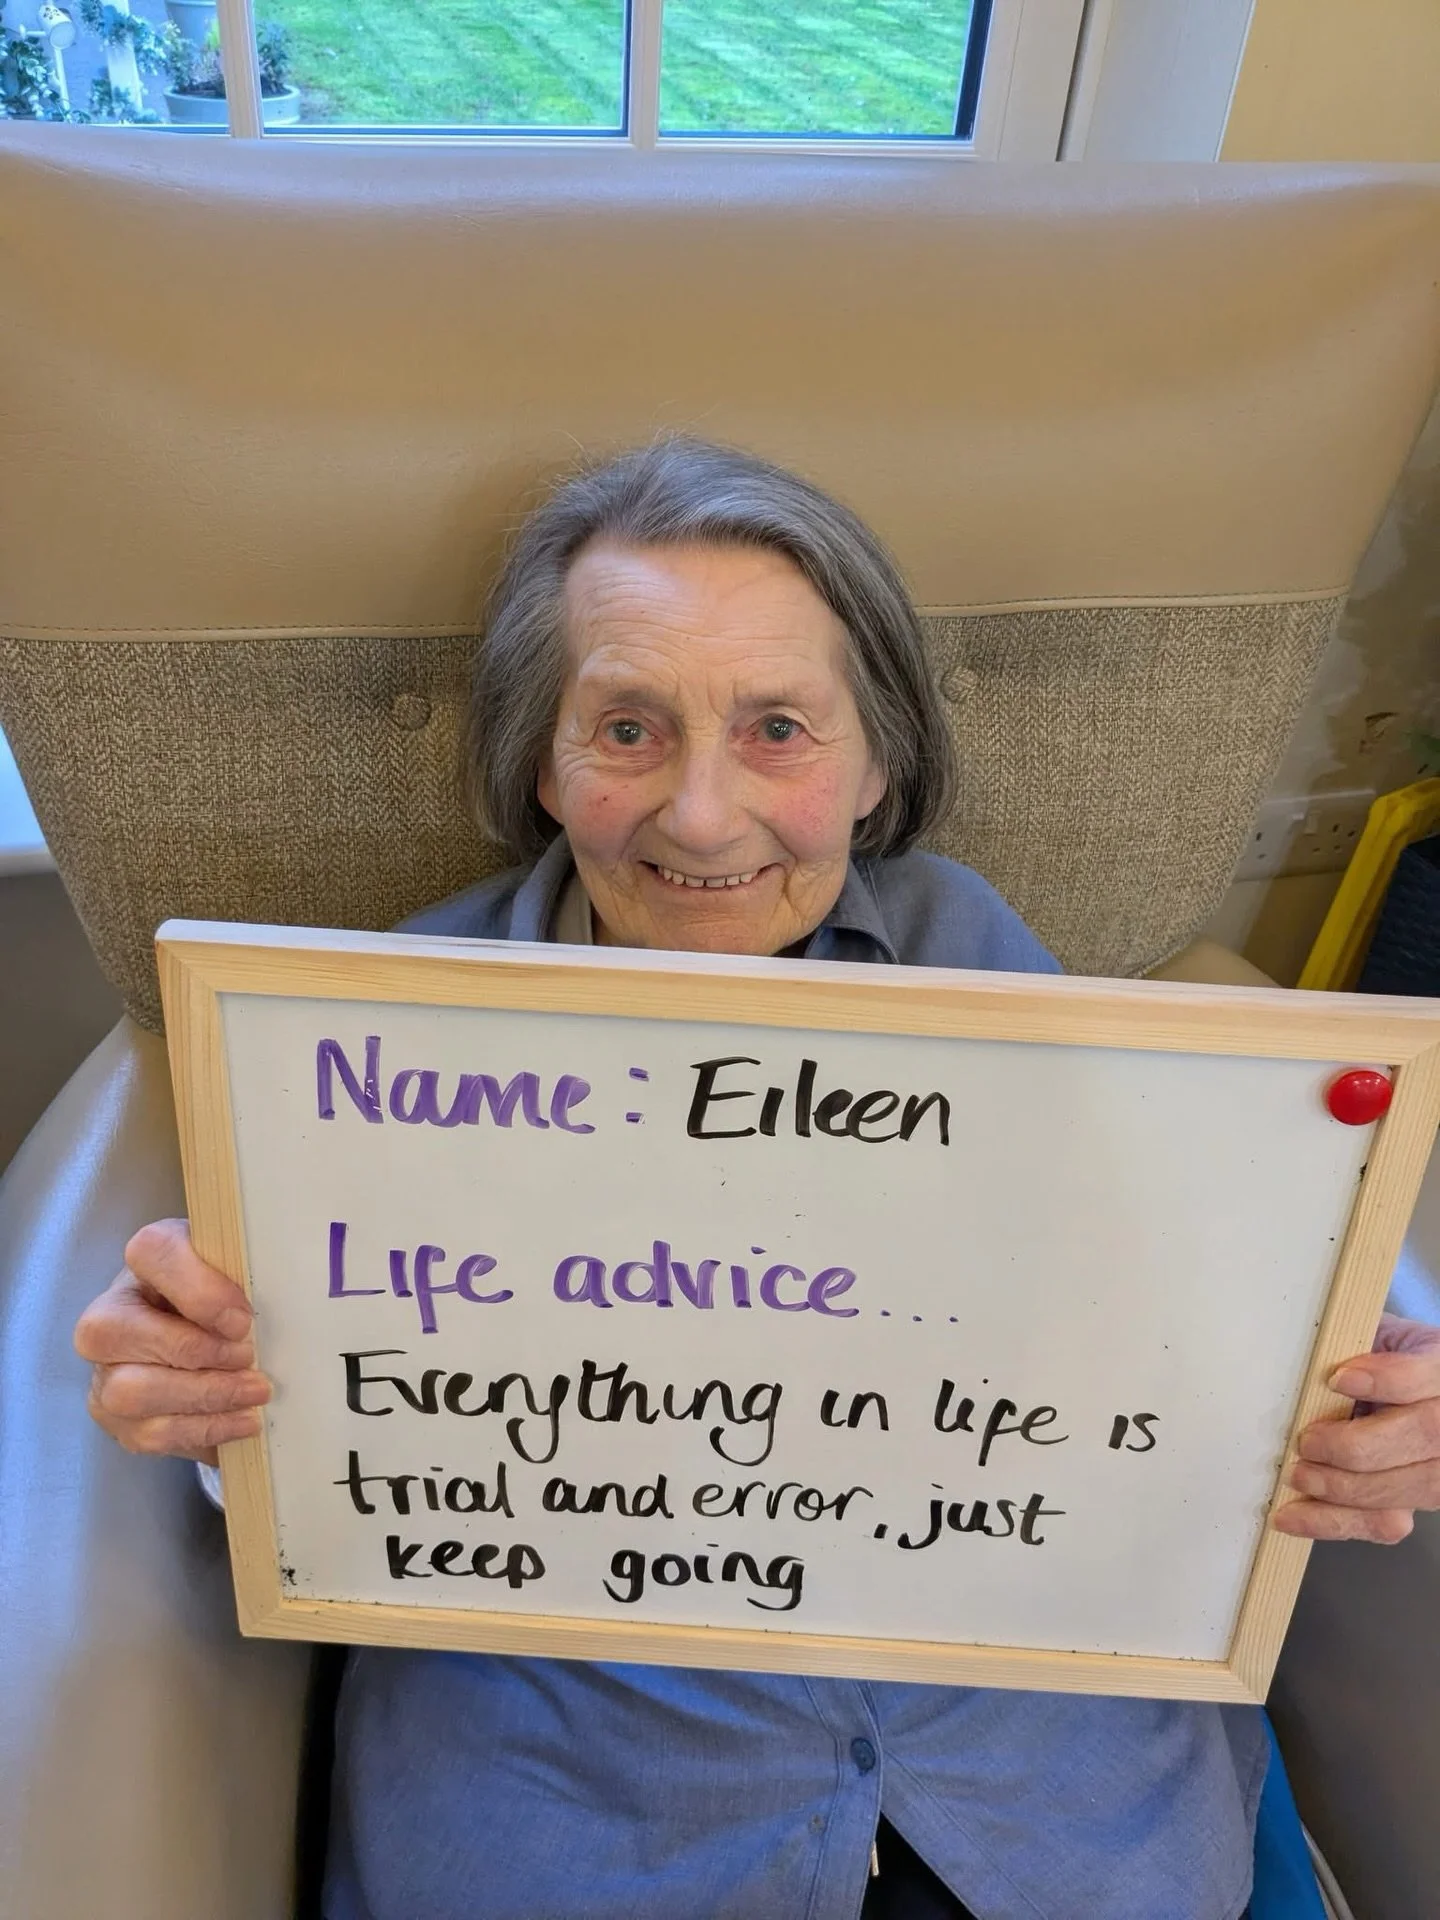 Name: Eileen
Life advice...
Everything in life is
trial and error, just
keep going